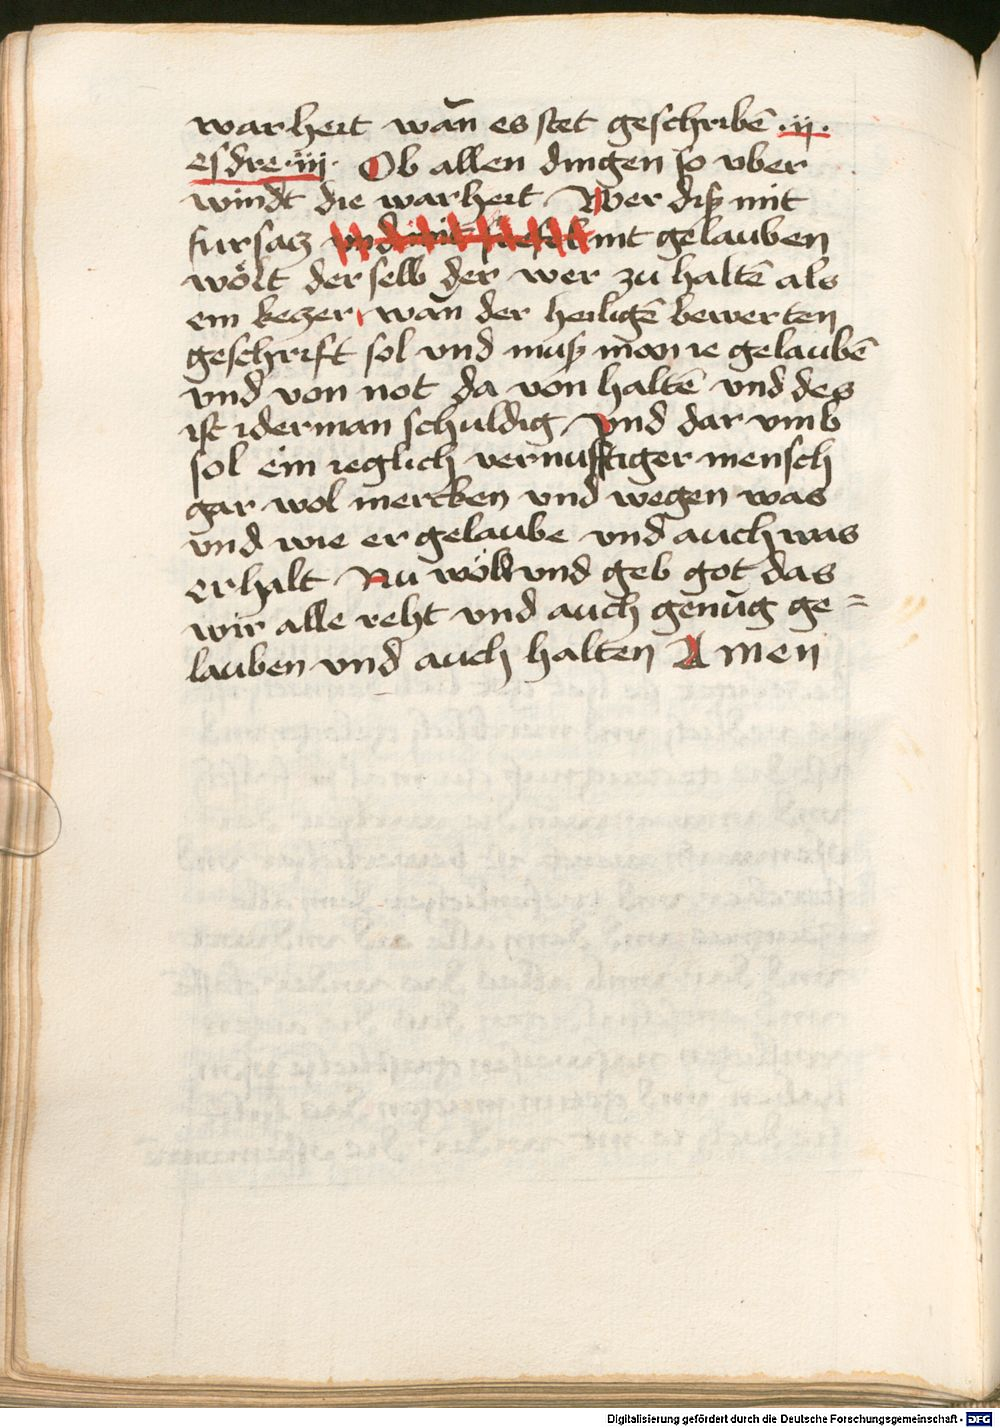 warheit wan̄ es stet geschribē .iij.
esdre .iij. Ob allen dingen so vber
windt die warheit Wer diß mit
fursacz nit gelauben
wölt der selb der wer zu haltē als
ein keczer wan̄ der heiligē bewerten
geschrift sol vnd muß man ie gelaubē
vnd von not da von haltē vnd des
ist iderman schuldig Vnd dar vmb
sol ein ieglich vernufftiger mensch
gar wol mercken vnd wegen was
vnd wie er gelaube vnd auch was
er halt Nu wöll vnd geb got das
wir alle reht vnd auch genūg ge=
lauben vnd auch halten Amen
Digitalisierung gefördert durch die Deutsche Forschungsgemeinschaft - DFG